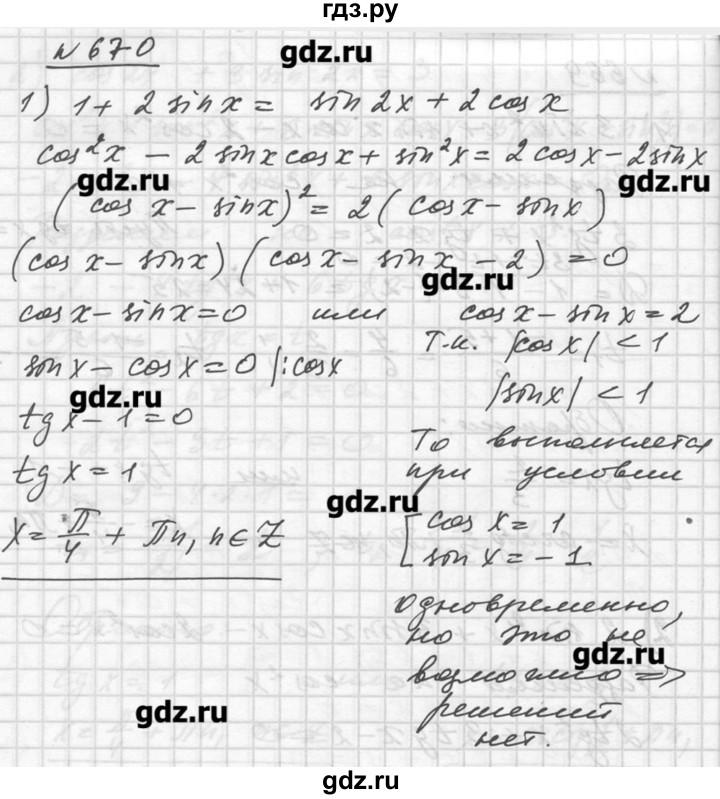 гдз.ру
№ 670
gdz.ru
1) 1 + 2 sin x = sin 2x + 2 cos x
cos²x − 2 sin x cos x + sin²x = 2 cos x − 2 sin x
gdz.ru gdz.ru
(cos x − sin x)² = 2 (cos x − sin x)
(cos x − sin x) (cos x − sin x − 2) = 0
gdz.ru
cos x − sin x = 0 или cos x − sin x = 2
sin x − cos x = 0 |: cos x Т.к. |cos x| < 1
gdz.ru |sin x| < 1
tg x − 1 = 0
То выполняется
tg x = 1 при условии
gdz.ru
x = π/4 + πn, n ∈ Z [ cos x = 1
sin x = −1
одновременно,
но это не
gdz.ru
возможно =>
решений
gdz.ru
нет.
gdz.ru